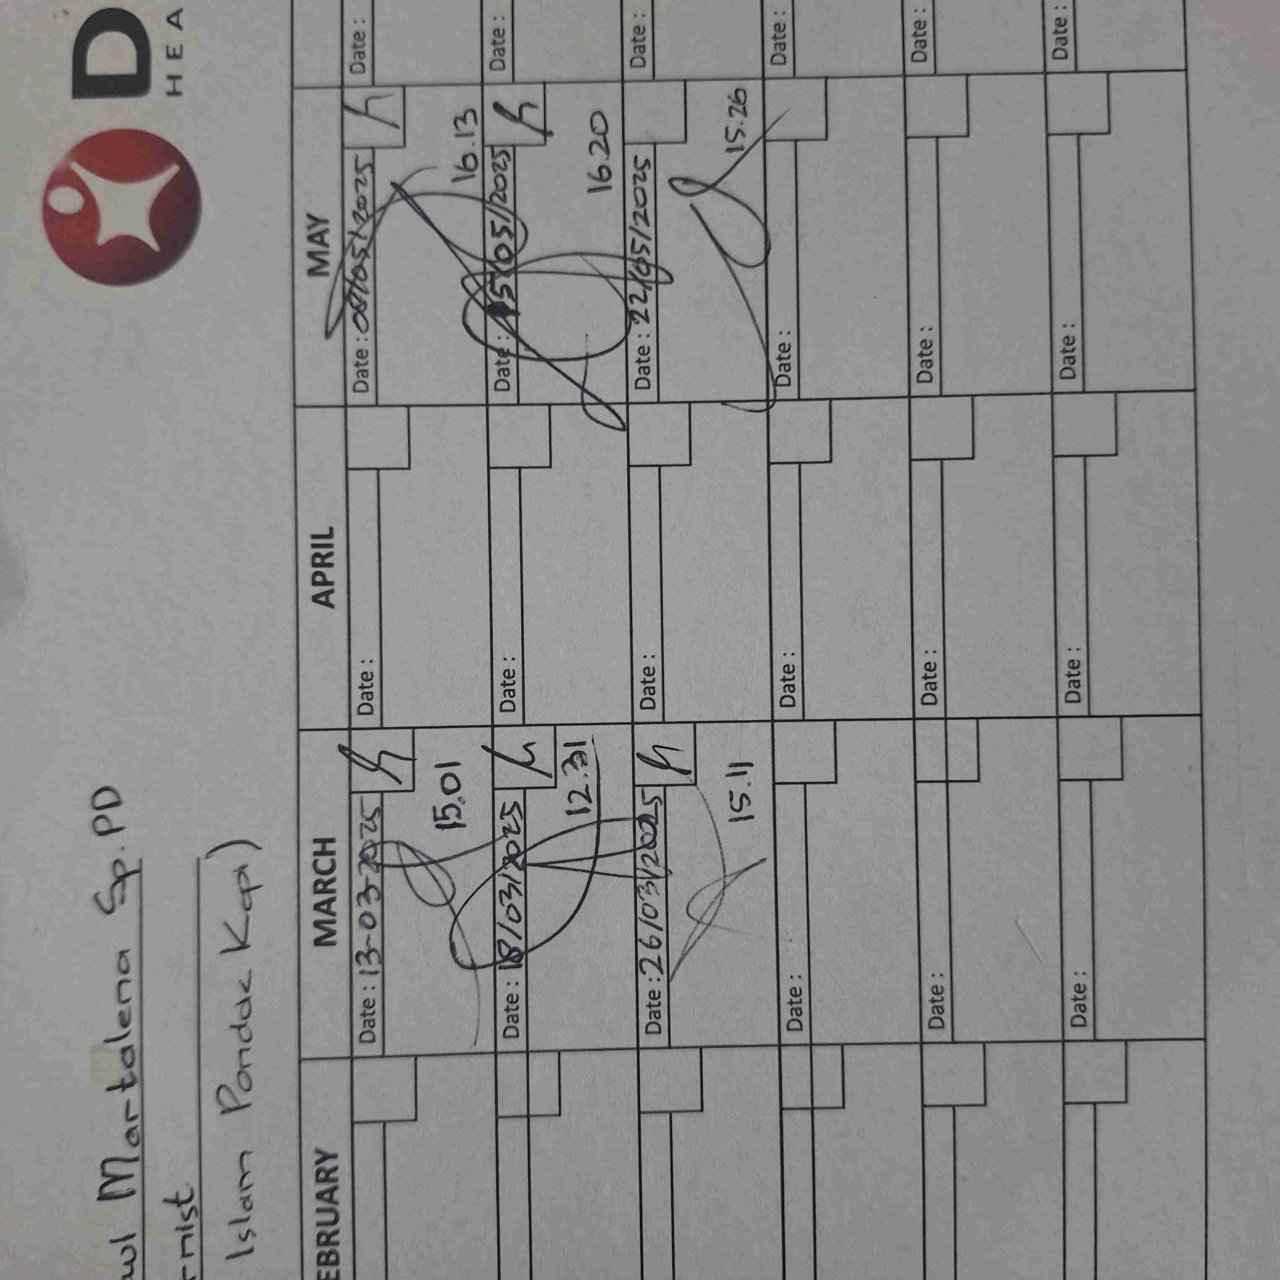 D
HEA
Martalena Sp.PD
Islam Pondok Kopi)
MARCH APRIL MAY
Date : 13-03-2025 Date : Date : 08/05/2025 Date :
15.01 16.13
Date : 18/03/2025 Date : Date : 15/05/2025 Date :
12.31 16.20
Date : 26/03/2025 Date : Date : 22/05/2025 Date :
15.11 15.26
Date : Date : Date : Date :
Date : Date : Date : Date :
Date : Date : Date : Date :